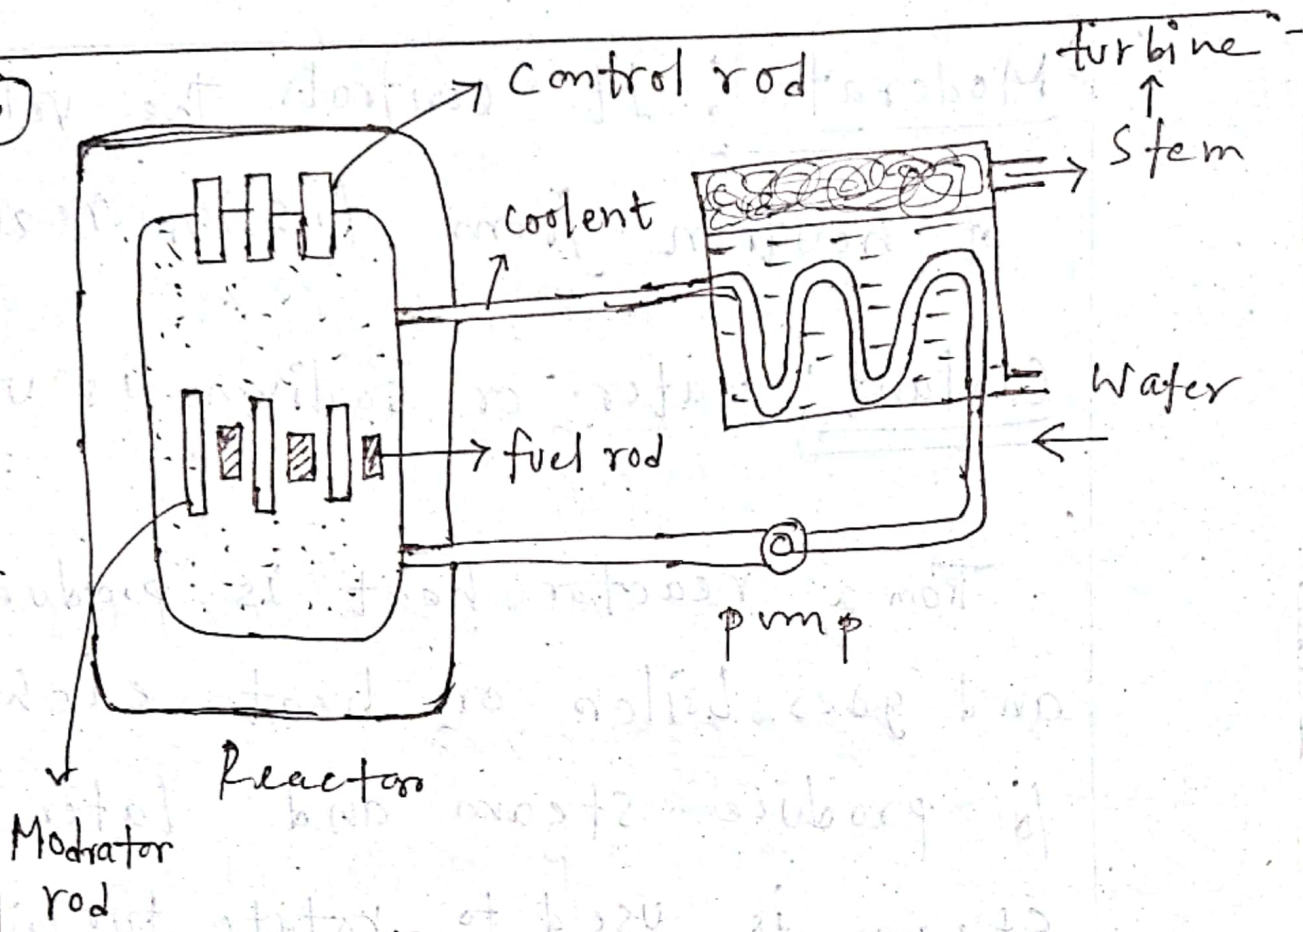 Control rod
turbine
Stem
coolent
Water
fuel rod
pump
Reactor
Modrator
rod